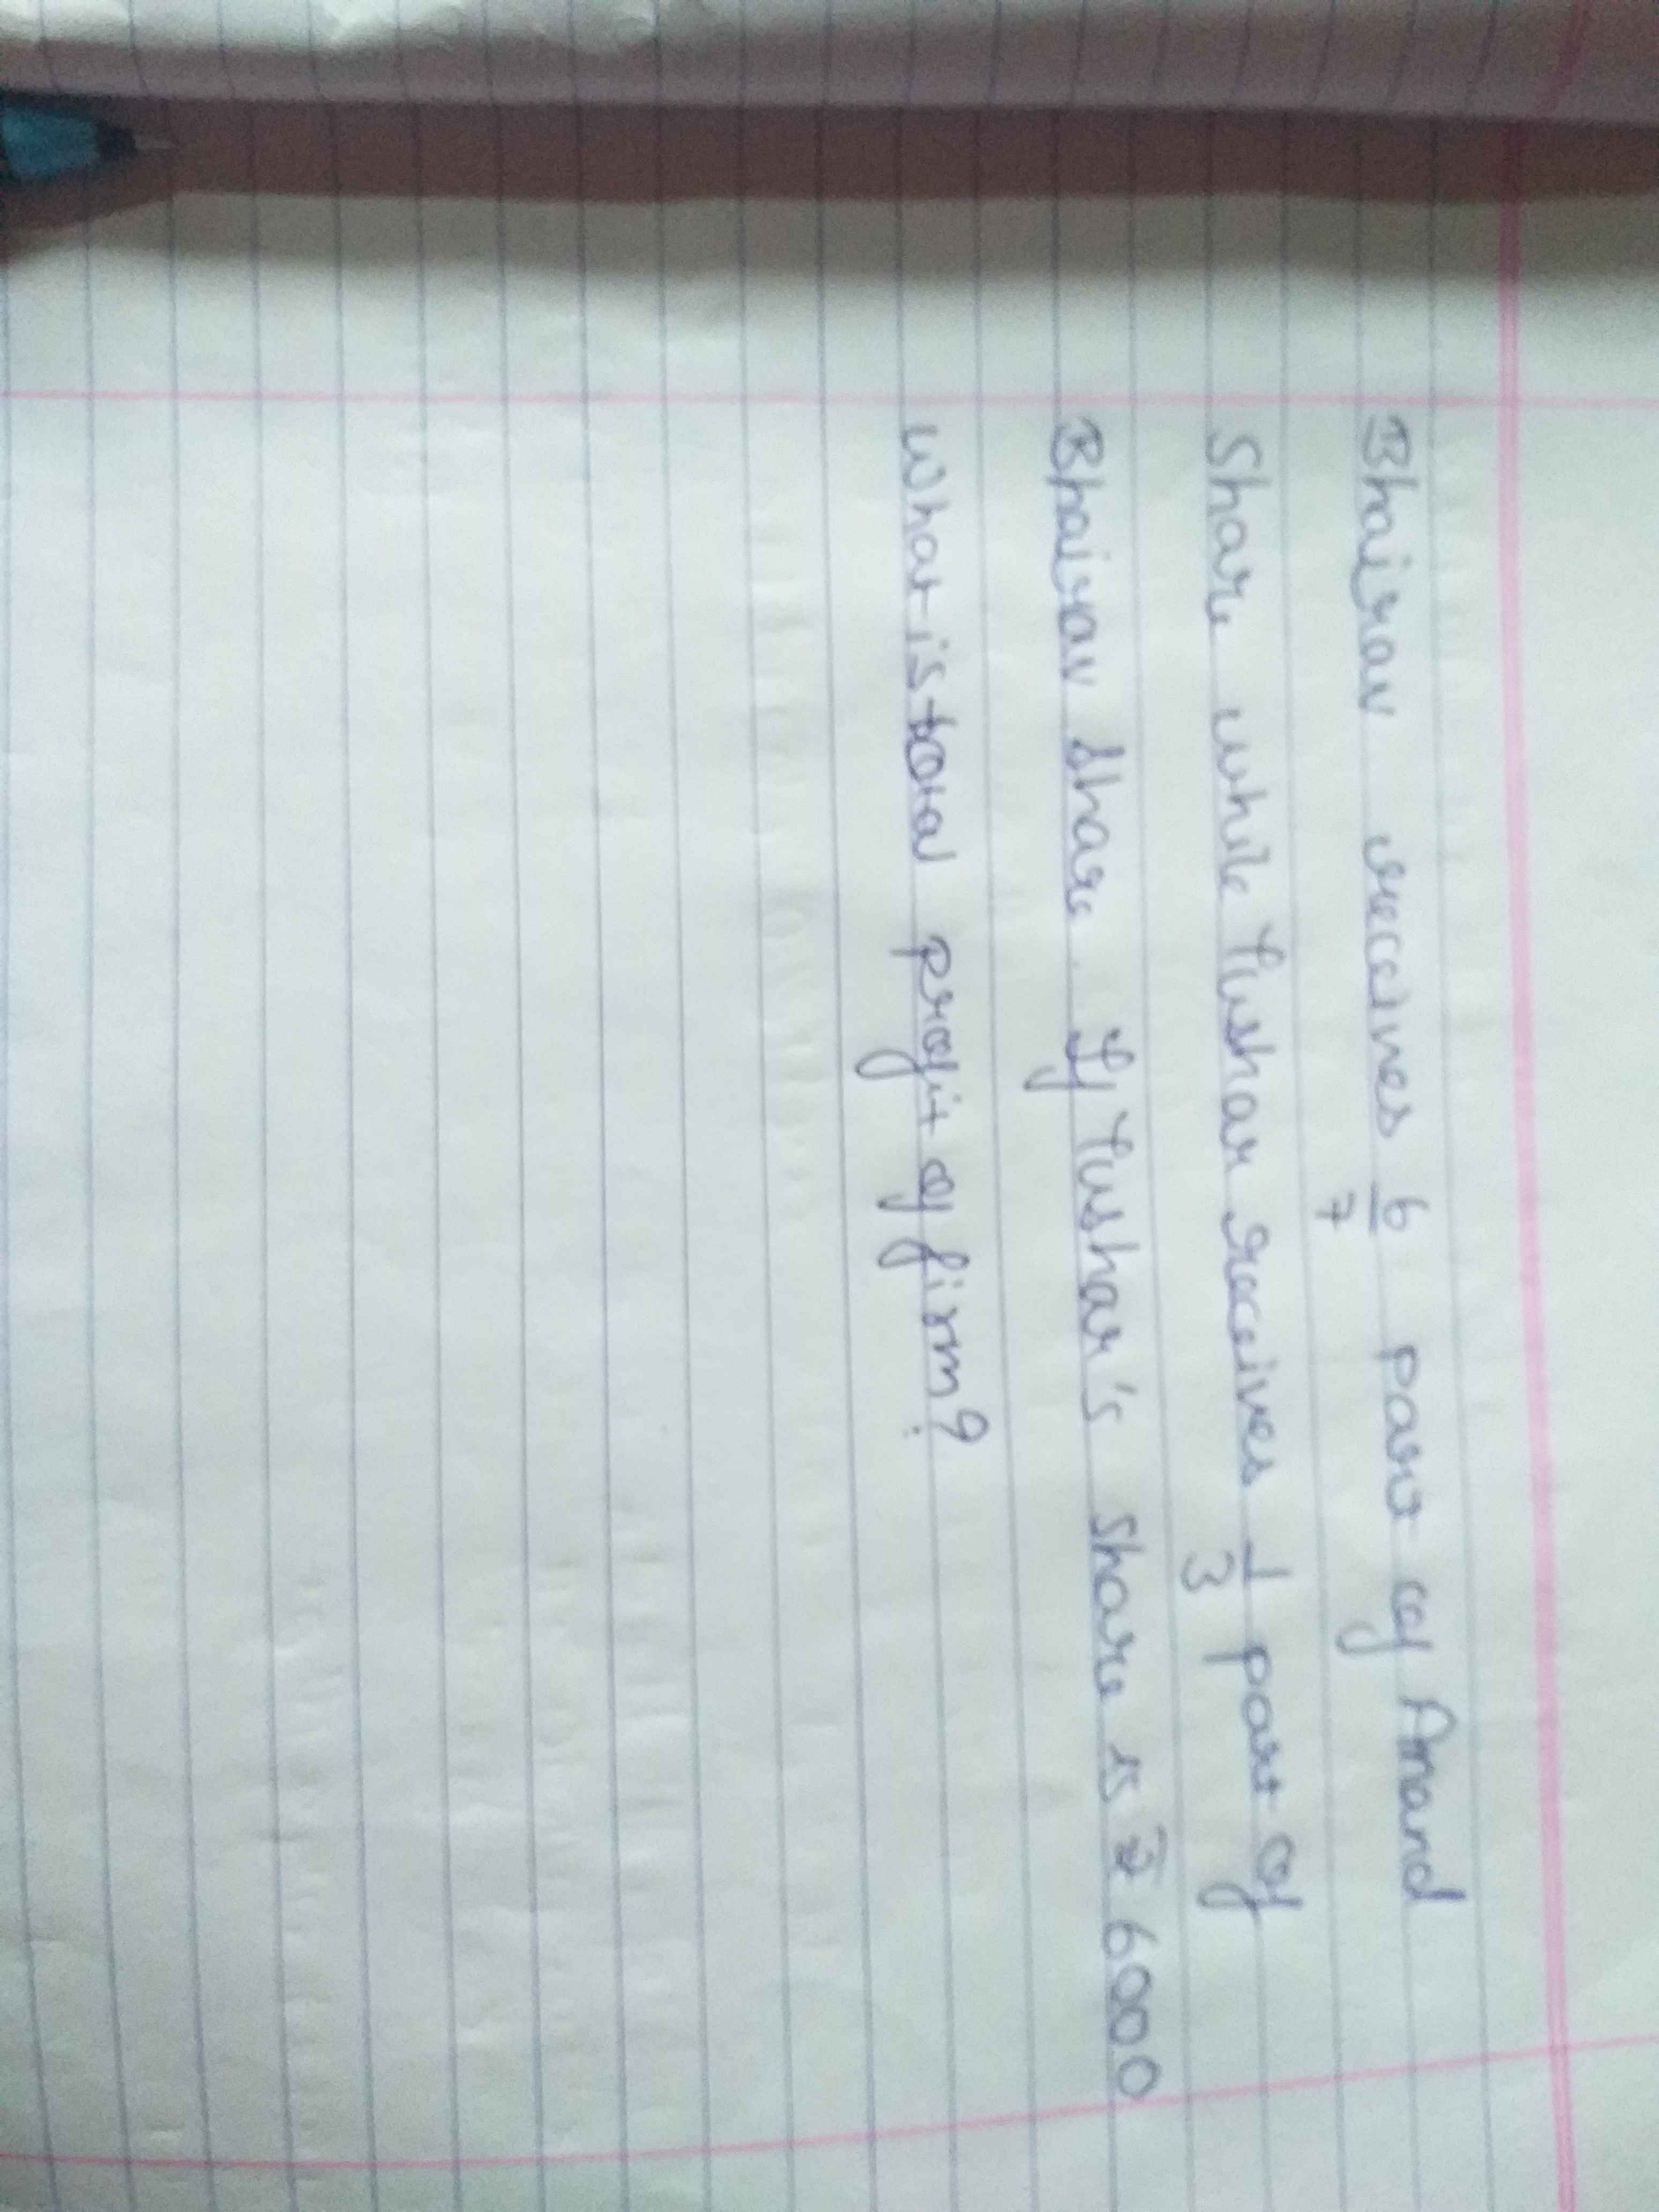 Bhairav receives 6/7 part of Anand
Share while Tushar receives 1/3 part of
Bhairav share. If Tushar's share is ₹ 6000
what is total profit of firm?